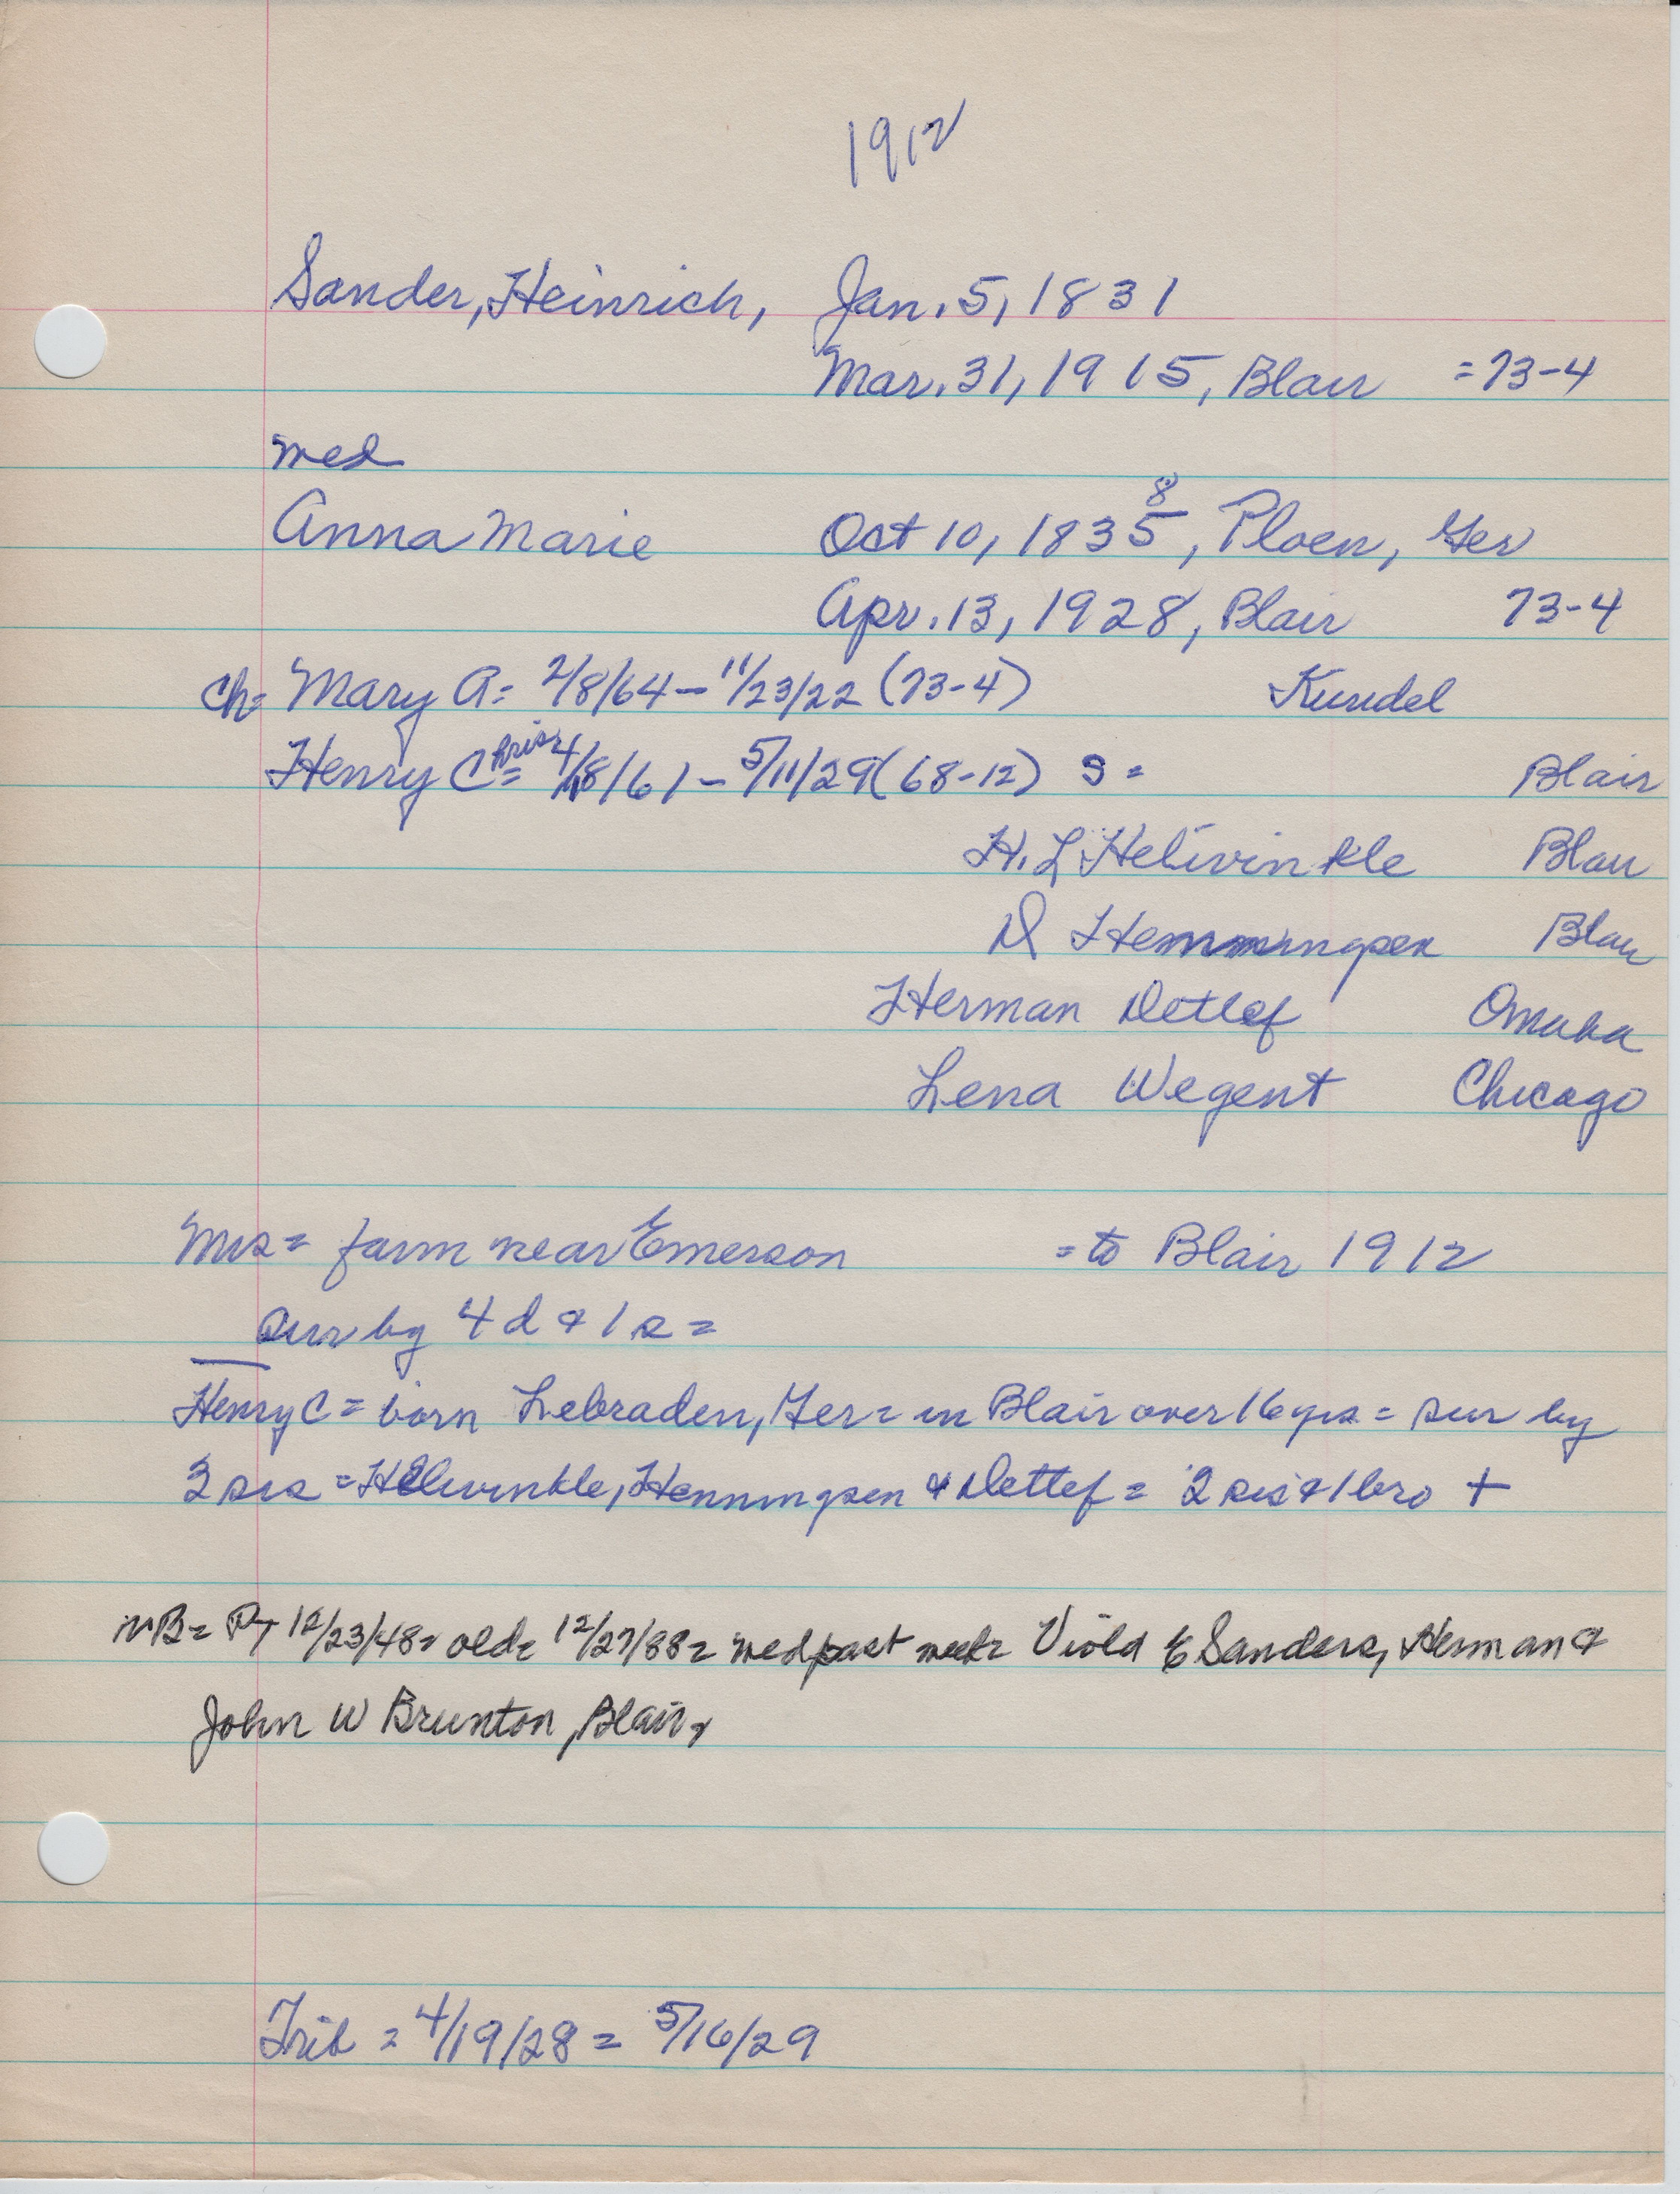 1912
Sander, Heinrich, Jan. 5, 1831
Mar. 31, 1915, Blair = 73-4
med
Anna Marie Oct 10, 1835 8, Ploen, Ger
Apr. 13, 1928, Blair 73-4
ch= Mary A= 2/8/64 - 11/23/22 (73-4) Kundel
Henry Chris= 4/18/61 - 5/11/29 (68-12) S = Blair
H. L Helwinkle Blair
D Hemmingsen Blair
Herman Detlef Omaha
Lena Wegent Chicago
Mrs = farm near Emerson = to Blair 1912
sur by 4 d & 1 s =
Henry C = born Lebraden, Ger = in Blair over 16 yrs = sur by
3 sis = Helwinkle, Henningsen & Detlef = 2 sis & 1 bro +
NB= PT 12/23/48= old= 12/27/88= med past week= Viola E Sanders, Herman &
John W Brunton, Blair,
Trib = 4/19/28 = 5/16/29